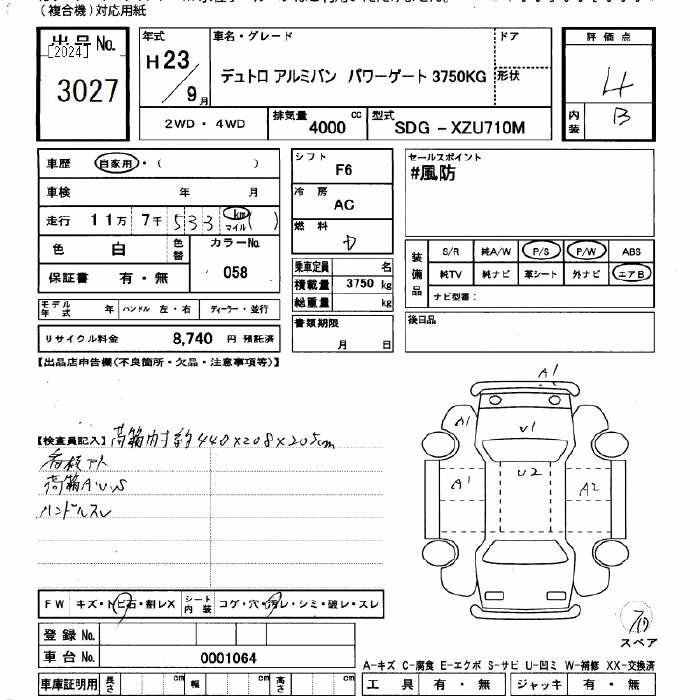 (複合機)対応用紙
出品No.
[2024]
3027
年式
H23/9月
車名・グレード
デュトロ アルミバン パワーゲート 3750KG
ドア
形状
2WD・4WD
排気量 4000 cc
型式 SDG-XZU710M
評価点
4
内装
B
車歴 自家用・( )
車検 年 月
走行 11万 7千 533 km マイル ( )
色 白 色替 カラーNo. 058
保証書 有・無
モデル年式 年 ハンドル 左・右 ディーラー・並行
リサイクル料金 8,740 円 預託済
シフト F6
冷房 AC
燃料
乗車定員 名
積載量 3750 kg
総重量 kg
書類期限 月 日
セールスポイント
#風防
装備品
S/R 純A/W P/S P/W ABS
純TV 純ナビ 革シート 外ナビ エアB
ナビ型番:
後日品
【出品店申告欄(不良箇所・欠品・注意事項等)】
【検査員記入】荷箱内寸約440×208×205cm
荷箱A,U,S
ハンドルスレ
A1
A1
U1
A1
U2
A2
スペア
FW キズ・トビ石・割レX シート内装 コゲ・穴・汚レ・シミ・破レ・スレ
登録No.
車台No. 0001064
車庫証明用 長さ cm 幅 cm 高さ cm
A-キズ C-腐食 E-エクボ S-サビ U-凹ミ W-補修 XX-交換済
工具 有・無 ジャッキ 有・無